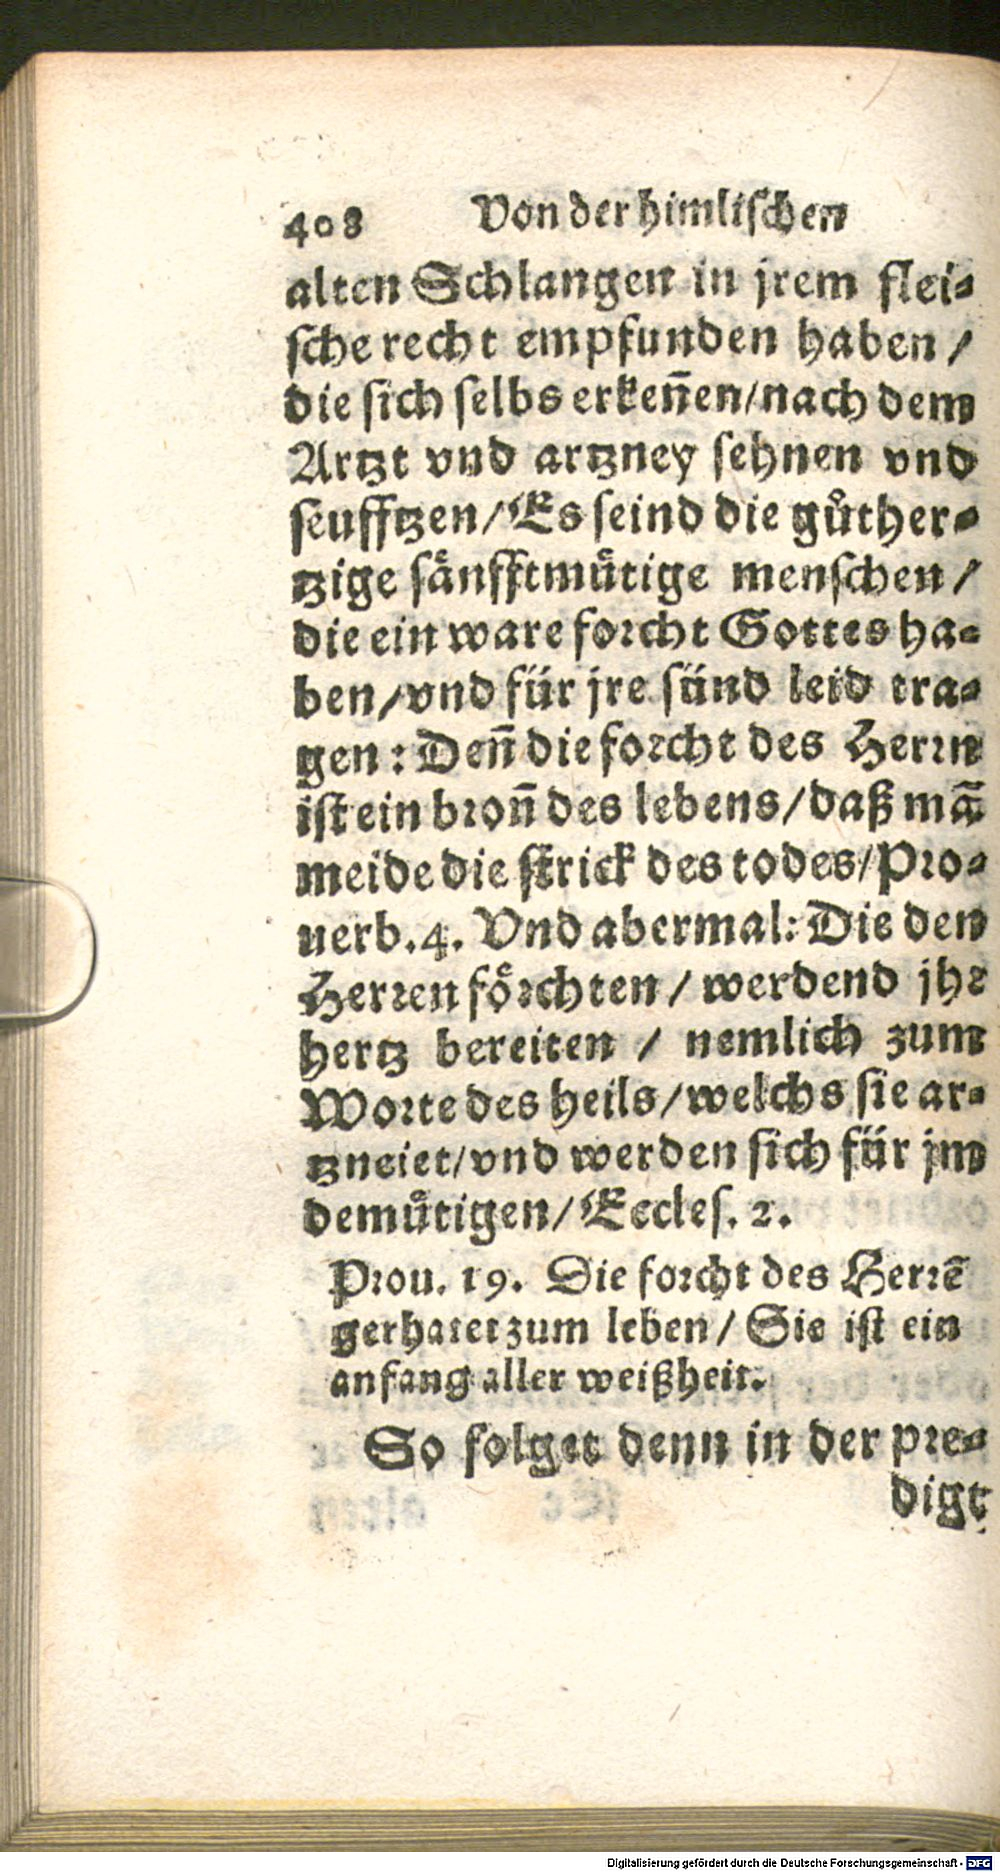 408 Von der himlischen
alten Schlangen in jrem flei-
sche recht empfunden haben /
die sich selbs erkeñen/nach dem
Artzt vnd artzney sehnen vnd
seufftzen/Es seind die gůther-
tzige sånfftmůtige menschen /
die ein ware forcht Gottes ha-
ben/vnd für jre sünd leid tra-
gen: Deñ die forcht des Herrn
ist ein broñ des lebens/daß mã
meide die strick des todes/Pro-
uerb.4. Vnd abermal: Die den
Herren fôrchten / werdend jhr
hertz bereiten / nemlich zum
Worte des heils/welchs sie ar-
tzneiet/vnd werden sich für jm
demůtigen/Eccles. 2.
Prou. 19. Die forcht des Herrẽ
gerhatet zum leben/ Sie ist ein
anfang aller weißheit.
So folget denn in der pre-
digt
Digitalisierung gefördert durch die Deutsche Forschungsgemeinschaft - DFG